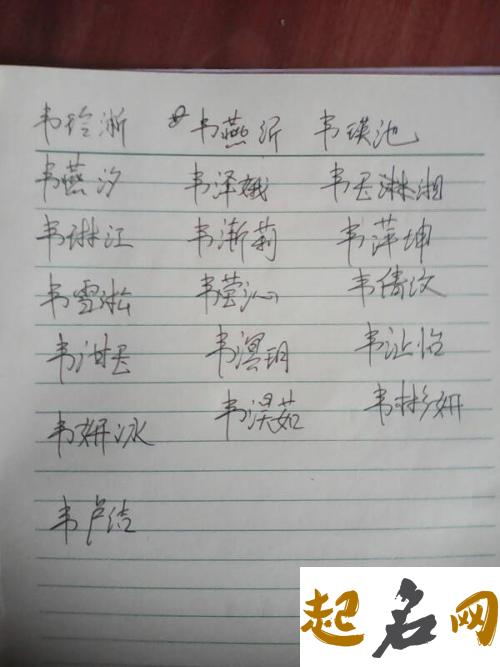 韦玲淅 韦燕沂 韦瑛池
韦燕汐 韦泽娥 韦丕淋湘
韦琳江 韦渐莉 韦萍坤
韦雪淞 韦莹沁 韦倩汶
韦泔丕 韦淏玥 韦沚怡
韦妍冰 韦淏茹 韦彬妍
韦卢洁
起名网